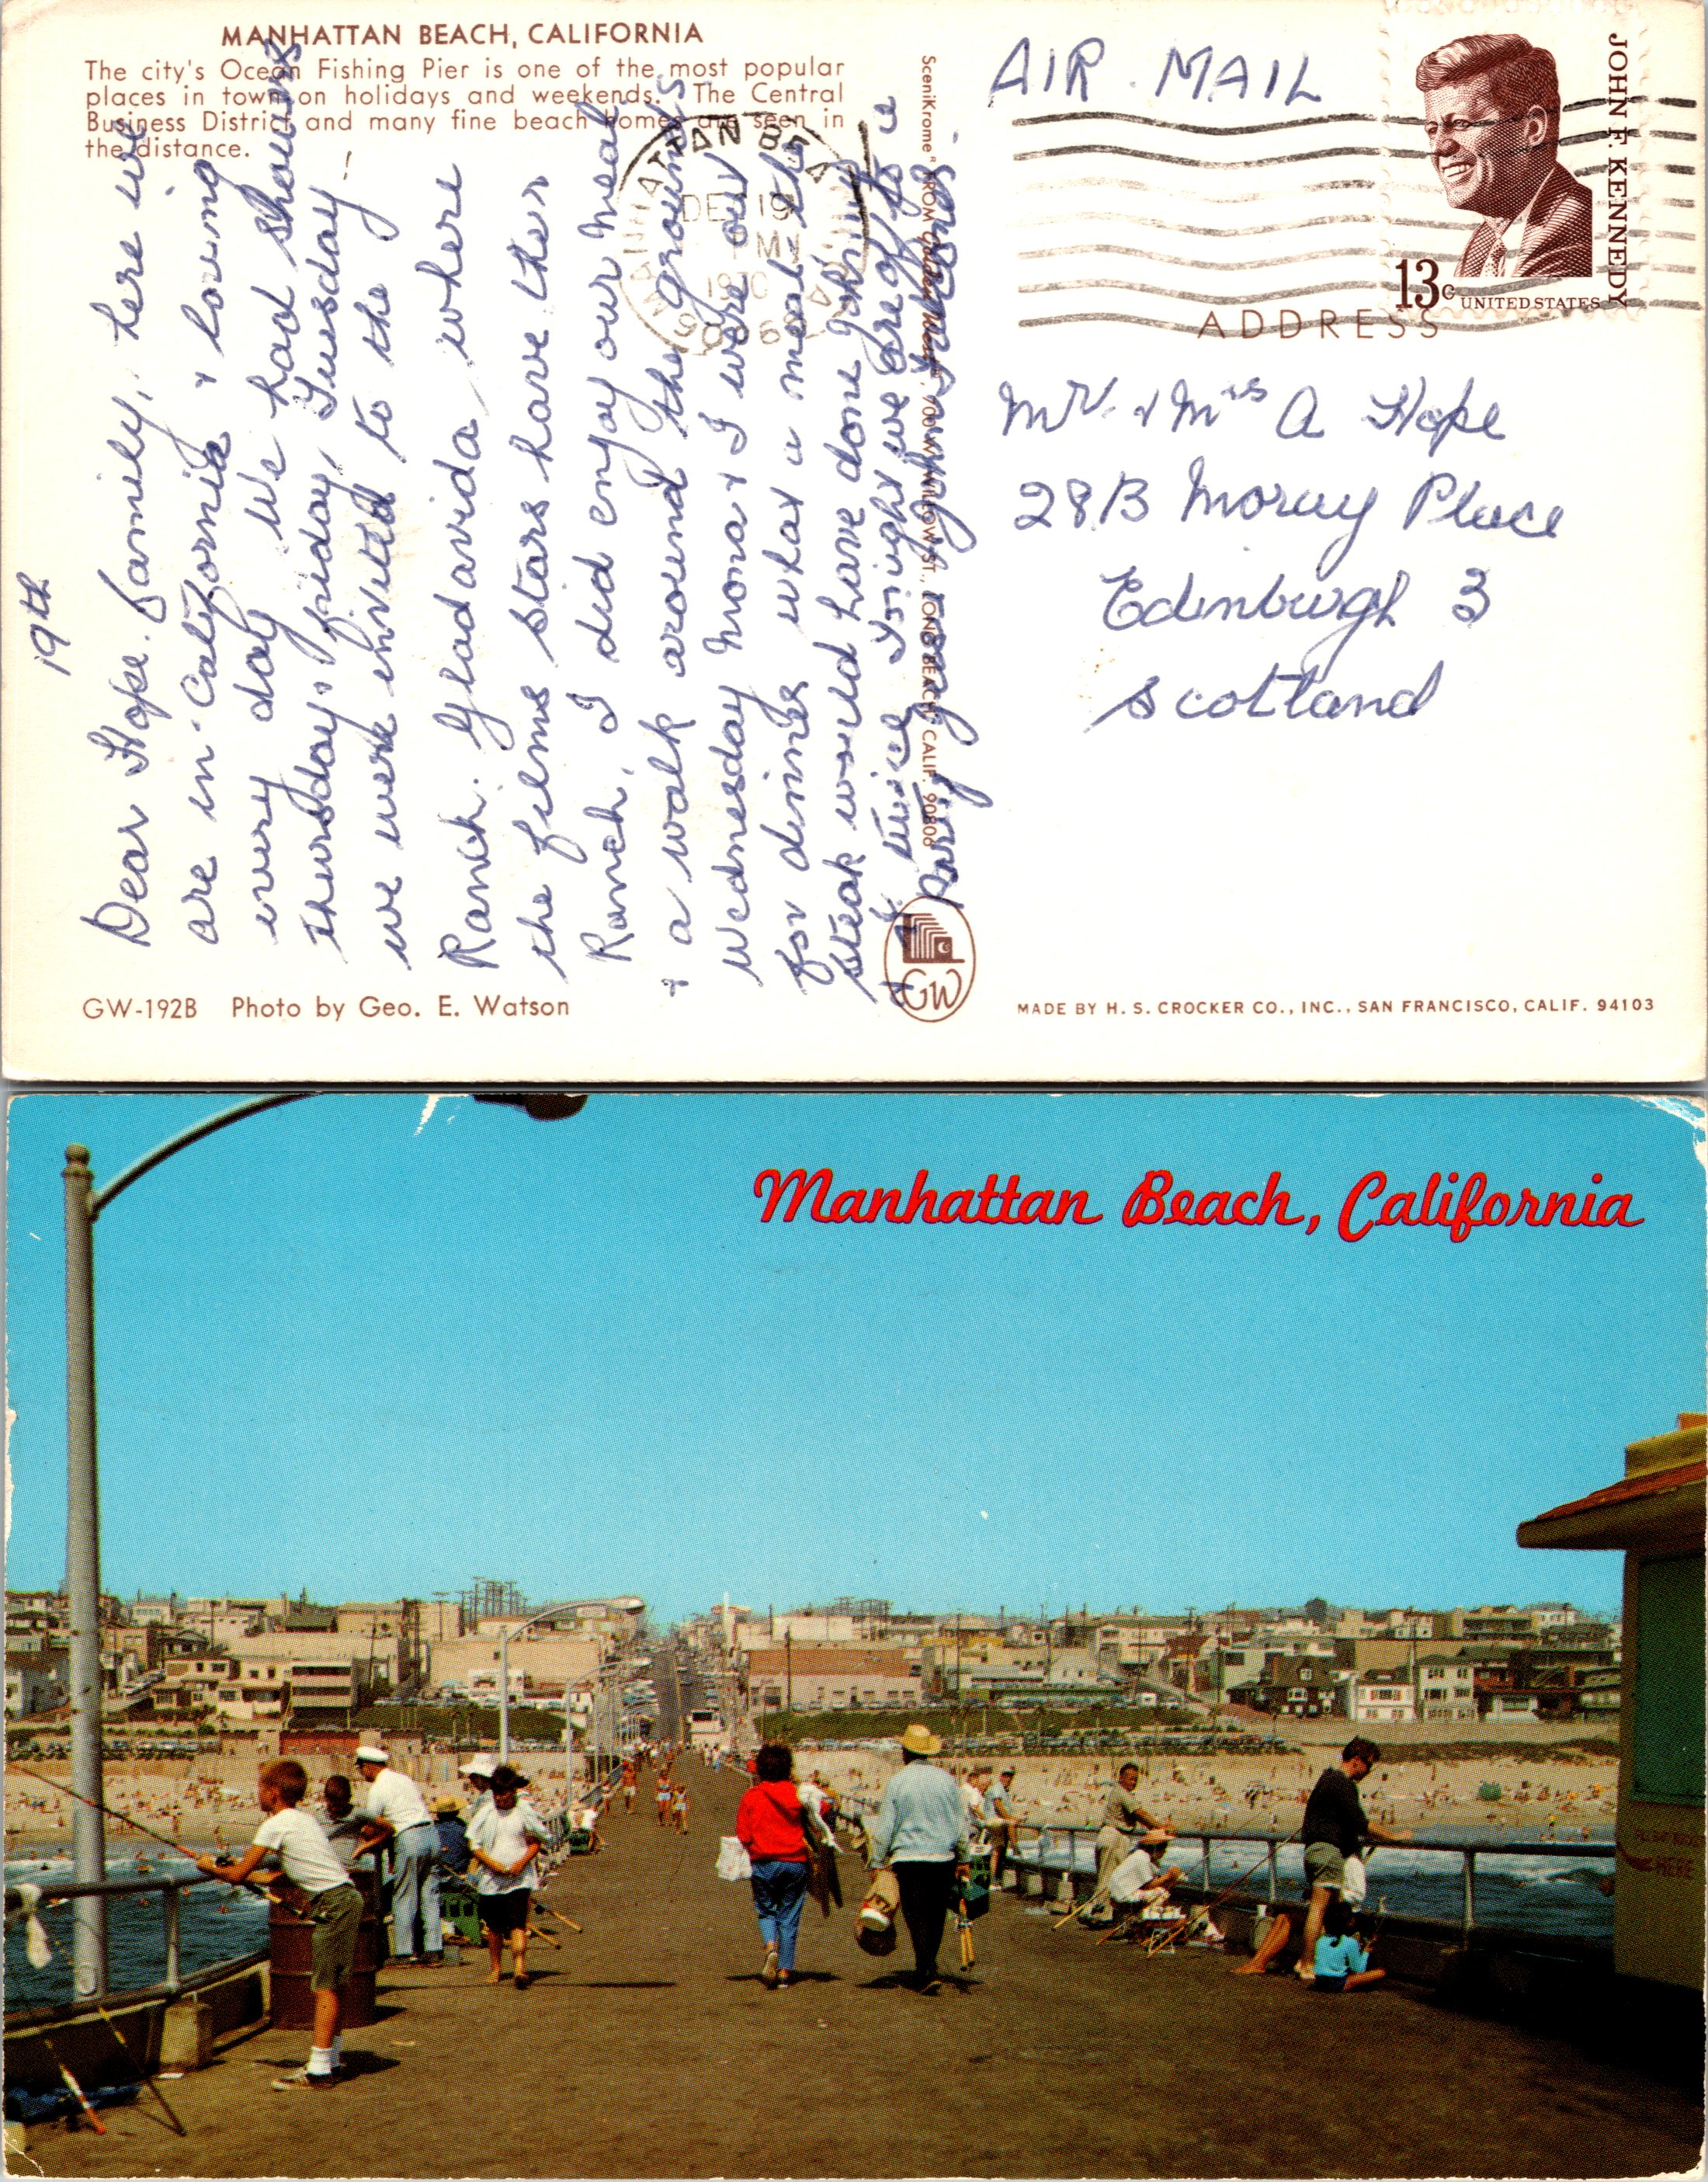 MANHATTAN BEACH, CALIFORNIA
The city's Ocean Fishing Pier is one of the most popular
places in town on holidays and weekends. The Central
Business District and many fine beach homes are seen in
the distance.
19th
Dear Hope. Family, here we
are in California & loving
every day We had showers
Thursday. friday, Tuesday!
we were invited to the
Ranch. Gladavida where
the films stars have ther
Ranch, I did enjoy our meal
& a walk around the grounds
wednesday mona & I were out
for dinner what a meal the
steak would have done John
twice we are off to a
GW-192B Photo by Geo. E. Watson
GW
SceniKrome® FROM Golden West, 700 W. WILLOW ST., LONG BEACH, CALIF. 90806
AIR. MAIL
MANHATTAN BEA
DEC 19
PM
1970
JOHN F. KENNEDY
13c UNITED STATES
ADDRESS
Mr. & Mrs A Hope
28B Moray Place
Edinburgh 3
Scotland
MADE BY H. S. CROCKER CO., INC., SAN FRANCISCO, CALIF. 94103
Manhattan Beach, California
HERE